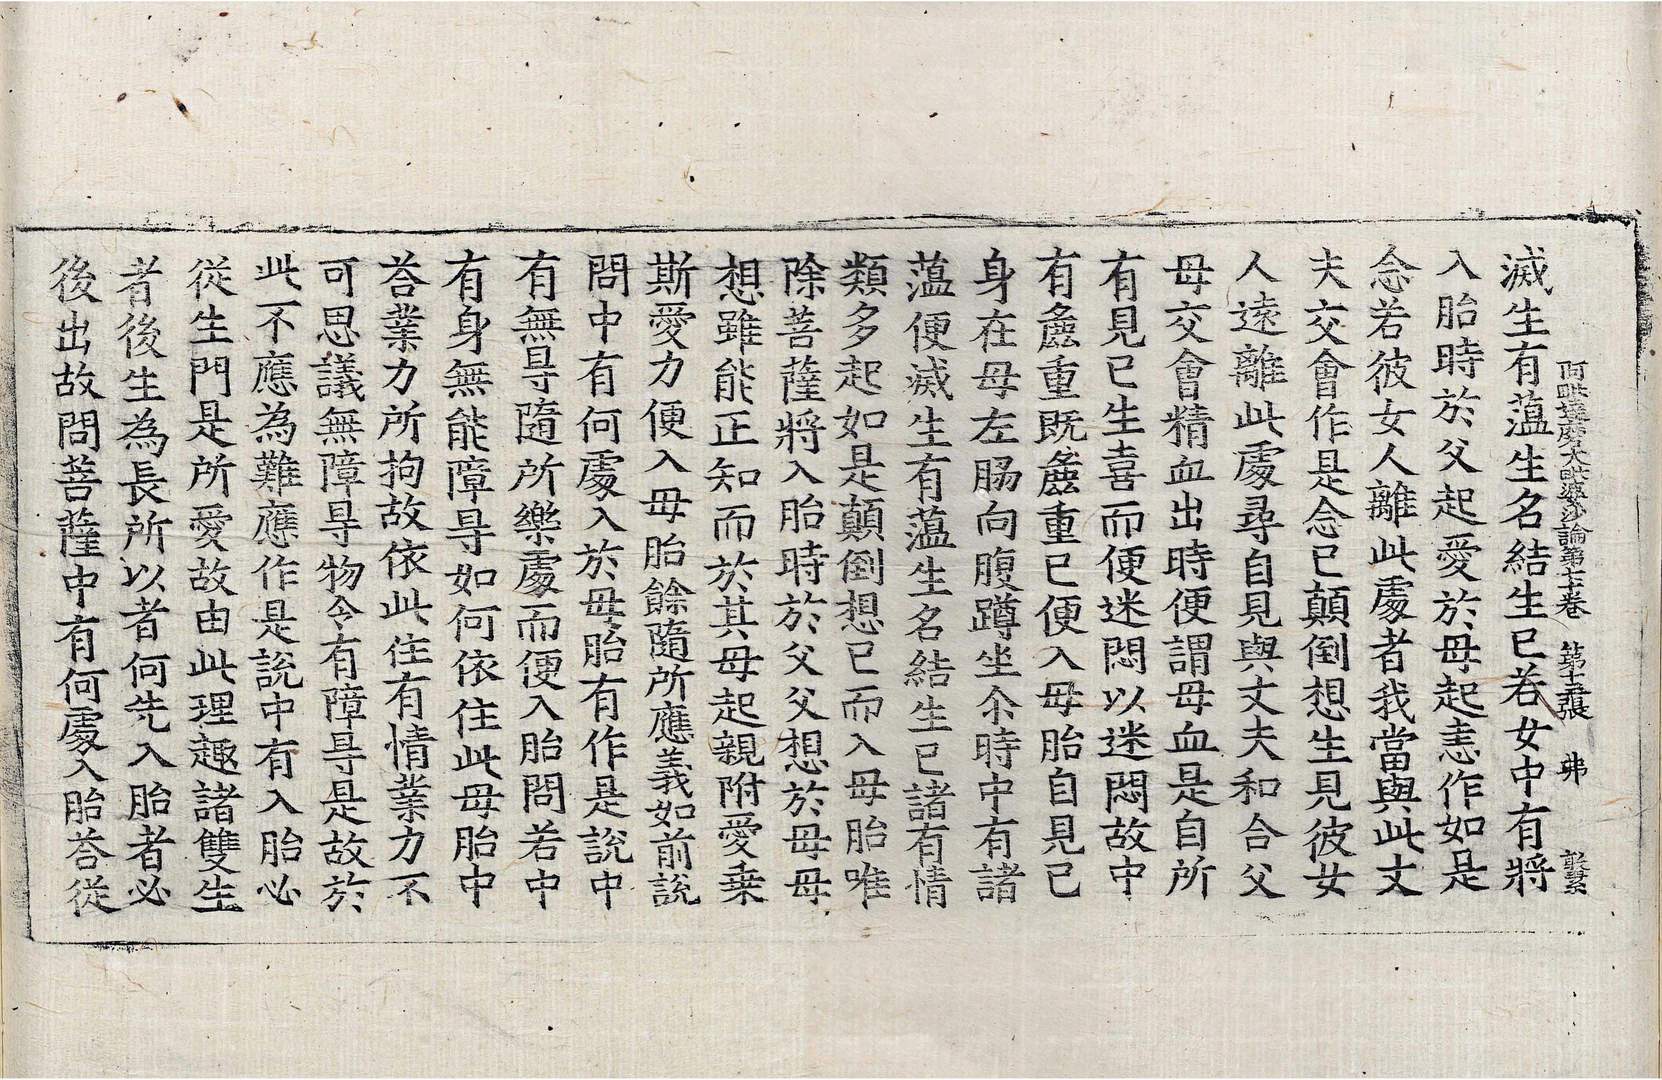 阿毗達磨大毗婆沙論第七十卷　第十五張　弗
滅生有薀生名結生已若女中有將
入胎時於父起愛於母起恚作如是
念若彼女人離此處者我當與此丈
夫交會作是念已顛倒想生見彼女
人遠離此處尋自見與丈夫和合父
母交會精血出時便謂母血是自所
有見已生喜而便迷悶以迷悶故中
有麁重既麁重已便入母胎自見已
身在母左脇向腹蹲坐尒時中有諸
薀便滅生有薀生名結生已諸有情
類多起如是顛倒想已而入母胎唯
除菩薩將入胎時於父父想於母母
想雖能正知而於其母起親附愛乗
斯愛力便入母胎餘隨所應義如前說
問中有何處入於母胎有作是說中
有無㝵隨所樂處而便入胎問若中
有身無能障㝵如何依住此母胎中
荅業力所拘故依此住有情業力不
可思議無障㝵物令有障㝵是故於
此不應為難應作是說中有入胎必
従生門是所愛故由此理趣諸雙生
者後生為長所以者何先入胎者必
後出故問菩薩中有何處入胎荅従